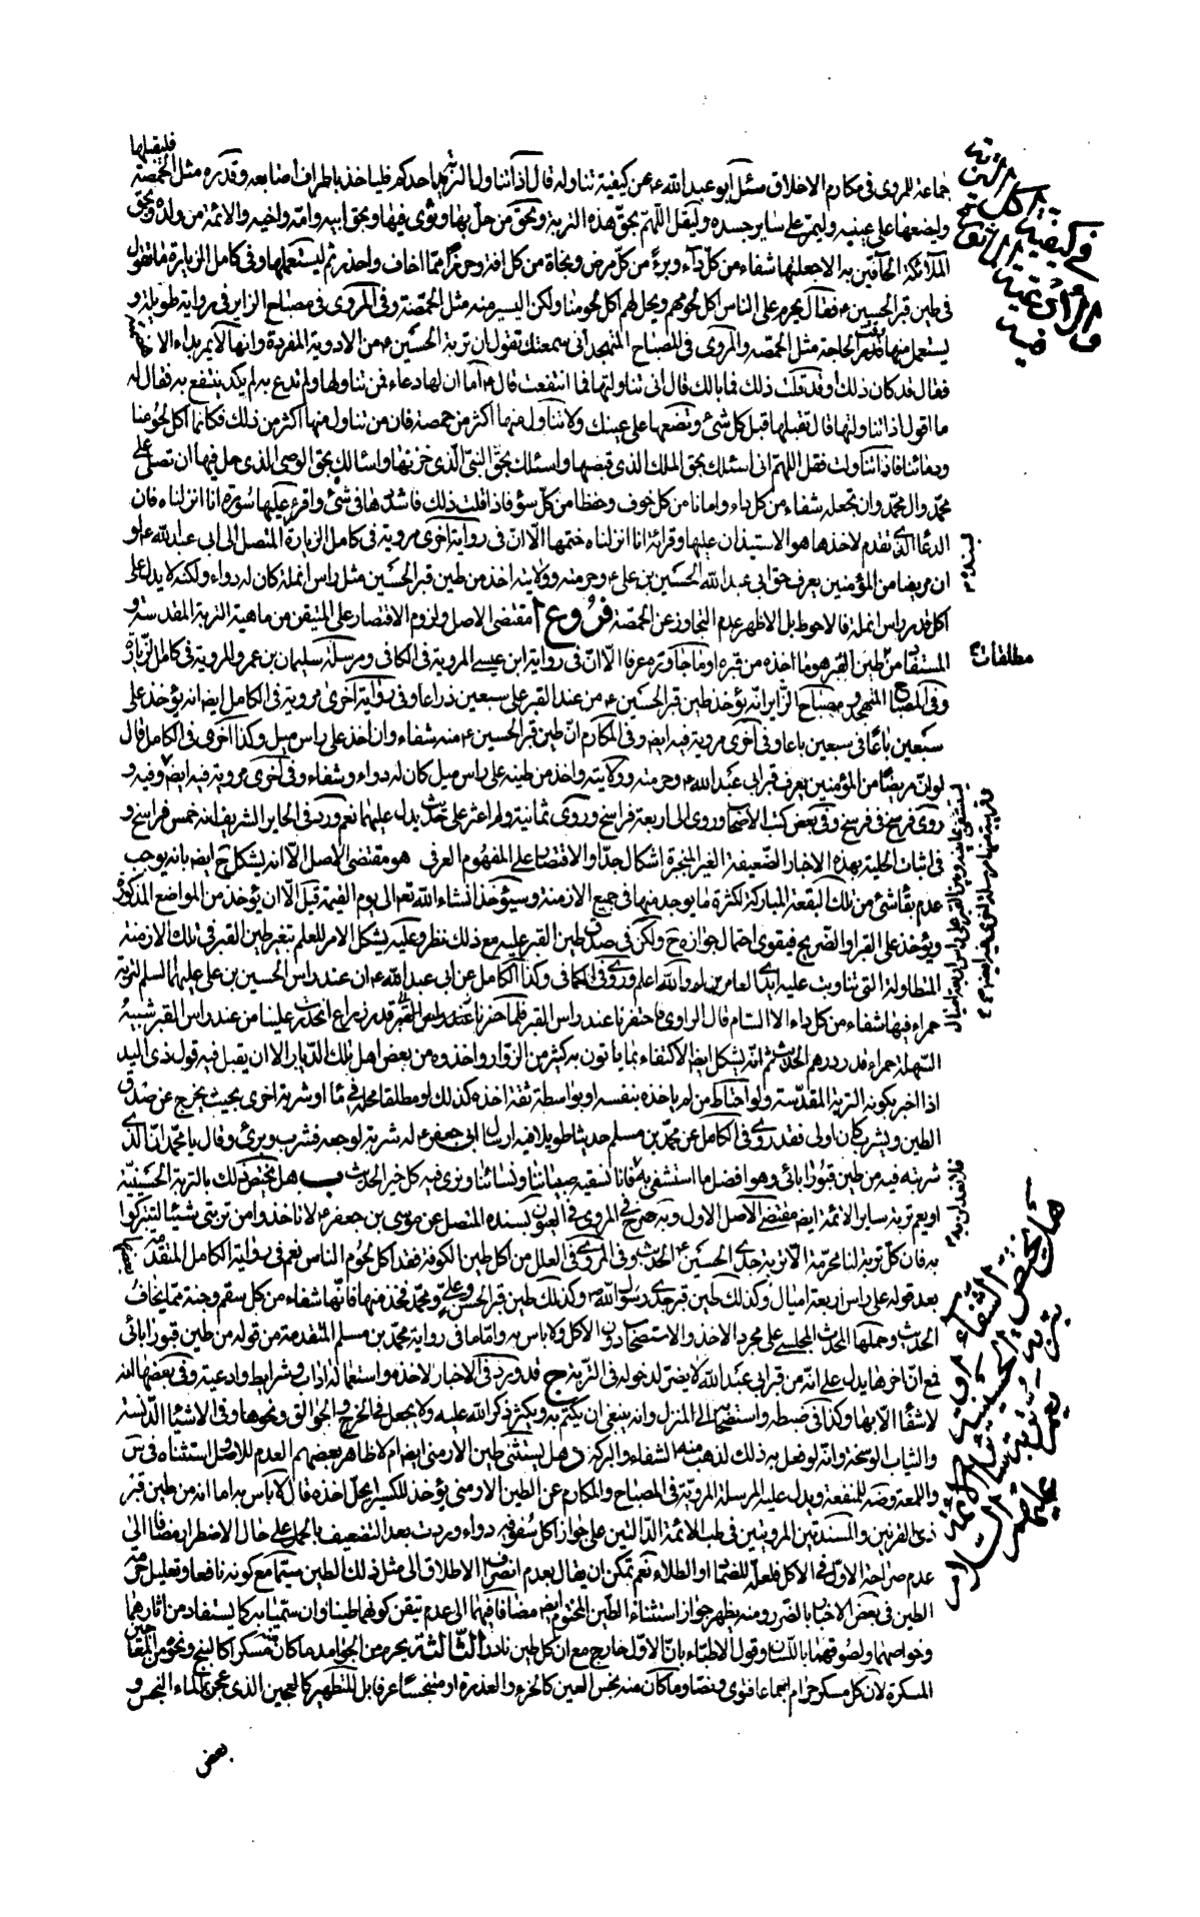 فليقبلها
جماعة للمروى فى مكارم الاخلاق سئل ابو عبد الله ع عن كيفية تناوله قال اذا تناول التربة احدكم فلياخذ باطراف اصابعه وقدره مثل الحمصة
وليضعها على عينيه وليمر على ساير جسده وليقل اللهم بحق هذه التربة وبحق من حل بها وثوى فيها وبحق ابيه وامه واخيه والائمة من ولده وبحق
الملائكة الحافين به الا جعلتها شفاء من كل داء وبرء من كل مرض ونجاة من كل افة وحرزا مما اخاف واحذر ثم ليستعملها وفى كامل الزيارة ما تقول
فى طين قبر الحسين ع فقال يحرم على الناس اكل لحومهم ويحل لهم اكل لحومنا ولكن اليسير منه مثل الحمصة وفى المروى فى مصباح الزاير فى رواية طويلة و
يستعمل منها وقت الحاجة مثل الحمصه والمروى فى المصباح المتهجد انى سمعتك تقول ان تربة الحسين ع من الادوية المفردة وانها لا يمر بداء الا
فقال قد كان ذلك او قد قلت ذلك فما بالك قال انى تناولتها فما انتفعت قال ع اما ان لها دعاء فمن تناولها ولم تدع به لم يكد ينتفع به فقال له
ما اقول اذا تناولتها قال تقبلها قبل كل شئ وتضعها على عينك ولا تناول منها اكثر من حمصة فان من تناول منها اكثر من ذلك فكانما اكل لحومنا
ودمائنا فاذا تناولت فقل اللهم انى اسئلك بحق الملك الذى قبضها واسئلك بحق النبى الذى خزنها واسالك بحق الوصى الذى حل فيها ان تصلى على
محمد وال محمد وان تجعله شفاء من كل داء وامانا من كل خوف وحفظا من كل سوء فاذا قلت ذلك فاشددها فى شئ واقرء عليها سورة انا انزلناه فان
الدعا الذى تقدم لاخذها هو الاستيذان عليها وقرائة انا انزلناه ختمها الا ان فى رواية اخرى مروية فى كامل الزيارة المتصل الى ابى عبد الله ع لو
ان مريضا من المؤمنين يعرف حق ابى عبد الله الحسين بن على ع وحرمته وولايته اخذ من طين قبر الحسين مثل راس انملة كان له دواء ولكنه لا يدل على
اكل قدر راس انملة فالاحوط بل الاظهر عدم التجاوز عن الحمصة فروع ا مقتضى الاصل ولزوم الاقتصار على المتيقن من ماهية التربة المقدسة و
المستفاد من طين القبر هو ما اخذ من قبره او ما جاوره عرفا الا ان فى رواية ابن عيسى المروية فى الكافى ومرسلة سليمان بن عمرو المروية فى كامل الزيارة
وفى المصباح المتهجد ومصباح الزاير انه يؤخذ طين قبر الحسين ع من عند القبر على سبعين ذراعا وفى رواية اخرى مروية فى الكامل ايضه انه يؤخذ على
سبعين باعا فى سبعين باعا وفى اخرى مروية فيه ايضه وفى المكارم ان طين قبر الحسين ع منه شفاء وان اخذ على راس ميل وكذا اخرى فى الكامل قال
لو ان مريضا من المؤمنين يعرف قبر ابى عبد الله ع وحرمته وولايته واخذ من طينه على راس ميل كان له دواء وشفاء وفى اخرى مروية فيه ايضه وفيه و
روى فرسخ فى فرسخ وفى بعض كتب الاصحاب وروى الى اربعة فراسخ وروى ثمانية ولم اعثر على حديث يدل عليهما نعم ورد فى الحاير الشريف انه خمس فراسخ و
فى اثبات الحلية بهذه الاخبار الضعيفة الغير المنجبرة اشكال جدا والاقتصار على المفهوم العرفى هو مقتضى الاصل الا انه يشكل ح ايضه بانه يوجب
عدم بقاء شئ من تلك البقعة المباركة لكثرة ما يوجد منها فى جميع الازمنة وسيؤخذ انشاء الله تعم الى يوم القيمة قيل الا ان يؤخذ من المواضع المذكورة
ويؤخذ على القبر او الضريح فيقوى احتمال جوازه ح ولكن فى صدق طين القبر عليه مع ذلك نظر وعليه يشكل الامر للعلم بتغير طين القبر فى تلك الازمنة
المتطاولة التى تناوبت عليه ايدى العامرين له والله اعلم وروى فى الكافى وكذا الكامل عن ابى عبد الله ع ان عند راس الحسين بن على عليهما السلم لتربة
حمراء فيها شفاء من كل داء الا السام قال الراوى فاحتفرنا عند راس القبر فلما حفرنا عند راس القبر قدر ذراع انحدرت علينا من عند راس القبر شبيه
السهلة حمراء قدر درهم الحديث ثم انه يشكل ايضه الاكتفاء بما ياتون به كثير من الزوار واخذوه من بعض اهل تلك الديار الا ان يقبل فيه قول ذى اليد
اذا اخبر بكونه التربة المقدسة ولو احتاط من لم ياخذه بنفسه او بواسطة ثقة اخذه كذلك او مطلقا بحله فى ماء او شربة اخرى بحيث يخرج عن صدق
الطين ويشرب كان اولى فقد روى فى الكامل عن محمد بن مسلم حديثا طويلا فيه ارسال ابى جعفر ع له شربة لوجعه فشرب وبرئ وقال يا محمد ان الذى
شربته فيه من طين قبور ابائى وهو افضل ما استشفى به فانا نسقيه صبياننا ونسائنا ونرى فيه كل خير الحديث ب هل يختص ذلك بالتربة الحسينية
او يعم تربة ساير الائمة ايضه مقتضى الاصل الاول وبه صرح فى المروى فى العيون بسنده المتصل عن موسى بن جعفر ع لا تاخذوا من تربتى شيئا لتتبركوا
به فان كل تربة لنا محرمة الا تربة جدى الحسين ع الحديث وفى المروى فى العلل من اكل طين الكوفة فقد اكل لحوم الناس نعم فى رواية الكامل المتقدمة
بعد قوله على راس اربعة اميال وكذلك طين قبر جدى رسول الله ص وكذلك طين قبر الحسن وعلى ومحمد فخذ منها فانها شفاء من كل سقم وجنة مما يخاف
الحديث وحملها المحدث المجلسى على مجرد الاخذ والاستصحاب دون الاكل ولا باس به واما ما فى رواية محمد بن مسلم المتقدمة من قوله من طين قبور ابائى
فمع ان اخرها يدل على انه من قبر ابى عبد الله لا يضر لدخوله فى التربة ج قد ورد فى الاخبار لاخذه واستعماله اداب وشرايط وادعية وفى بعضها انه
لا شفاء الا بها وكذا فى ضبطه واستصحابه الى المنزل وانه ينبغى ان يكتم به ويكثر ذكر الله عليه ولا يجعل فى الخرج والجوالق ونحوها وفى الاشياء الدنسة
والثياب الوسخة وانه لو فعل به ذلك لذهب منه الشفاء والبركة د هل يستثنى طين الارمنى ايضه ام لا ظاهر بعضهم العدم للاصل واستثناه فى س
واللمعة وضه للمنفعة ويدل عليه المرسلة المروية فى المصباح والمكارم عن الطين الارمنى يؤخذ للكسير ايحل اخذه قال لا باس به اما انه من طين قبر
ذى القرنين والمسندتين المرويتين فى طب الائمة الدالتين على جواز اكل سفوف فيه دواء وردت بعد التضعيف بالحمل على حال الاضطرار مضافا الى
عدم صراحة الاول فى الاكل فلعله للضماد او الطلاء نعم يمكن ان يقال بعدم انصراف الاطلاق الى مثل ذلك الطين سيما مع كونه نافعا وتعليل حرمة
الطين فى بعض الاخبار بالضرر ومنه يظهر جواز استثناء الطين المختوم ايضه مضافا فيهما الى عدم تيقن كونهما طينا وان سميا به كما يستفاد من اثارهما
وخواصهما ولصوقهما باللسان وقول الاطباء بان الاول خارج مع ان كل طين بارد الثالثة يحرم من الجوامد ما كان مسكرا كالبنج ونحوه من البقايا
المسكرة لان كل مسكر حرام اجماعا فتوى ونصا وما كان منه نجس العين كالخرء والعذرة او متنجسا غير قابل للتطهير كالعجين الذى عجن بالماء النجس و
بعض
فى كيفية اكل التربة
مطلقات
هل يختص الشفاء